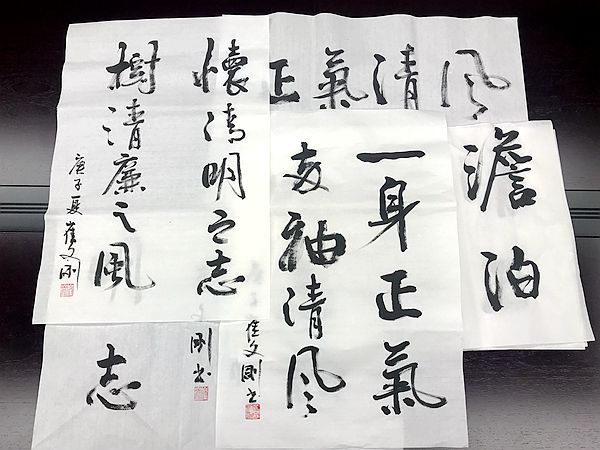 懷清明之志
樹清廉之風
庚子夏 崔文刚
风清氣正
一身正氣
两袖清风
崔文剛书
澹泊
志
剛书